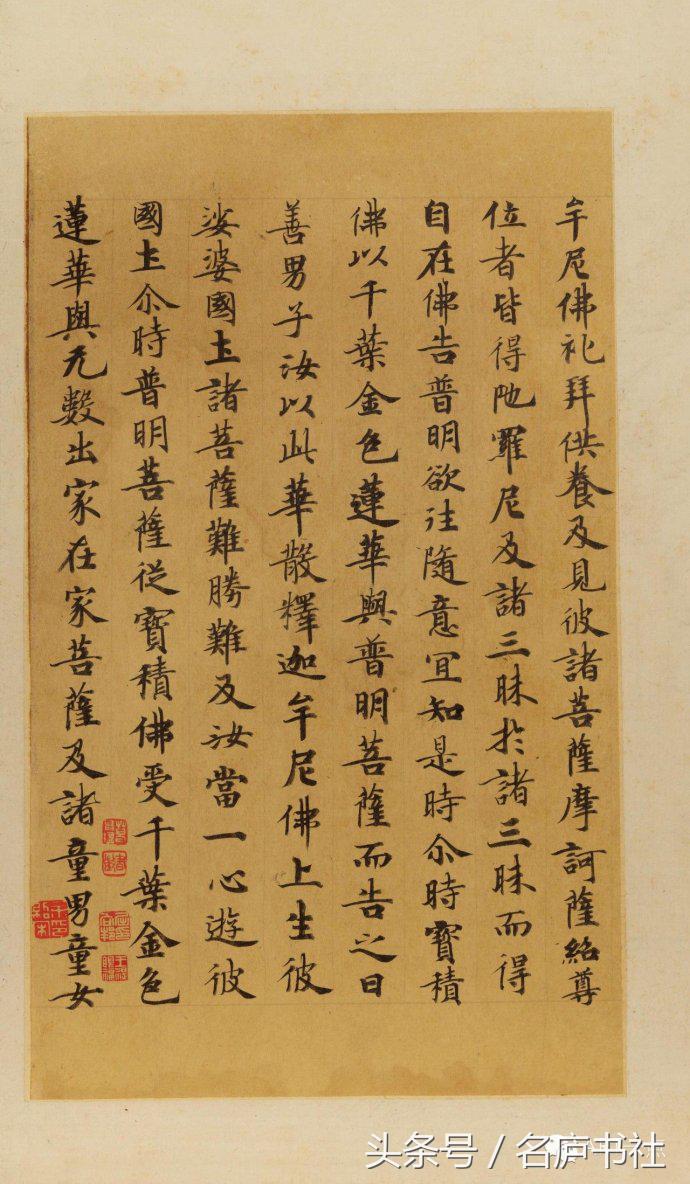 牟尼佛礼拜供養及見彼諸菩薩摩訶薩紹尊
位者皆得陁羅尼及諸三昧於諸三昧而得
自在佛告普明欲往隨意宜知是時尒時寶積
佛以千葉金色蓮華與普明菩薩而告之曰
善男子汝以此華散釋迦牟尼佛上生彼
娑婆國土諸菩薩難勝難及汝當一心遊彼
國土尒時普明菩薩從寶積佛受千葉金色
蓮華與无數出家在家菩薩及諸童男童女
头条号 / 名庐书社